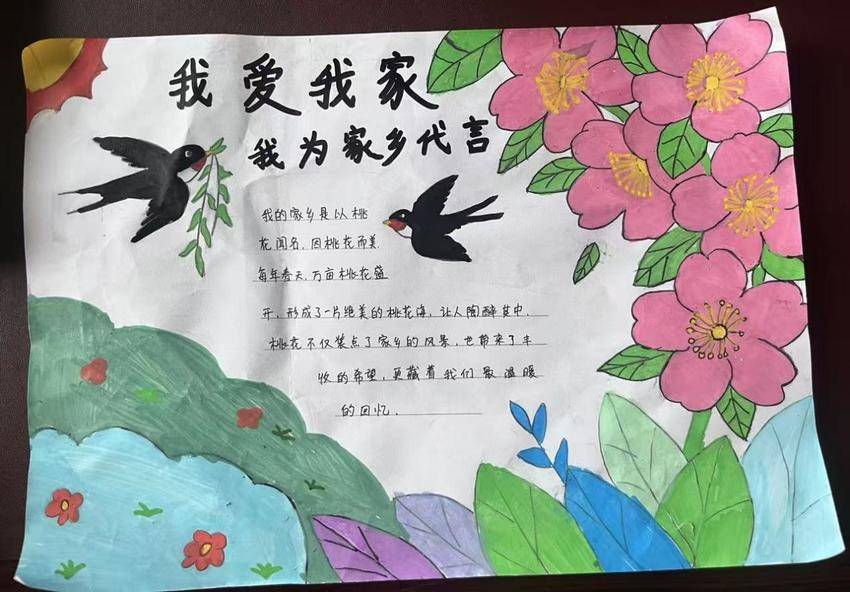 我爱我家
我为家乡代言
我的家乡是以桃
花闻名，因桃花而美
每年春天，万亩桃花盛
开，形成了一片绝美的桃花海，让人陶醉其中，
桃花不仅装点了家乡的风景，也带来了丰
收的希望，更藏着我们最温暖
的回忆．